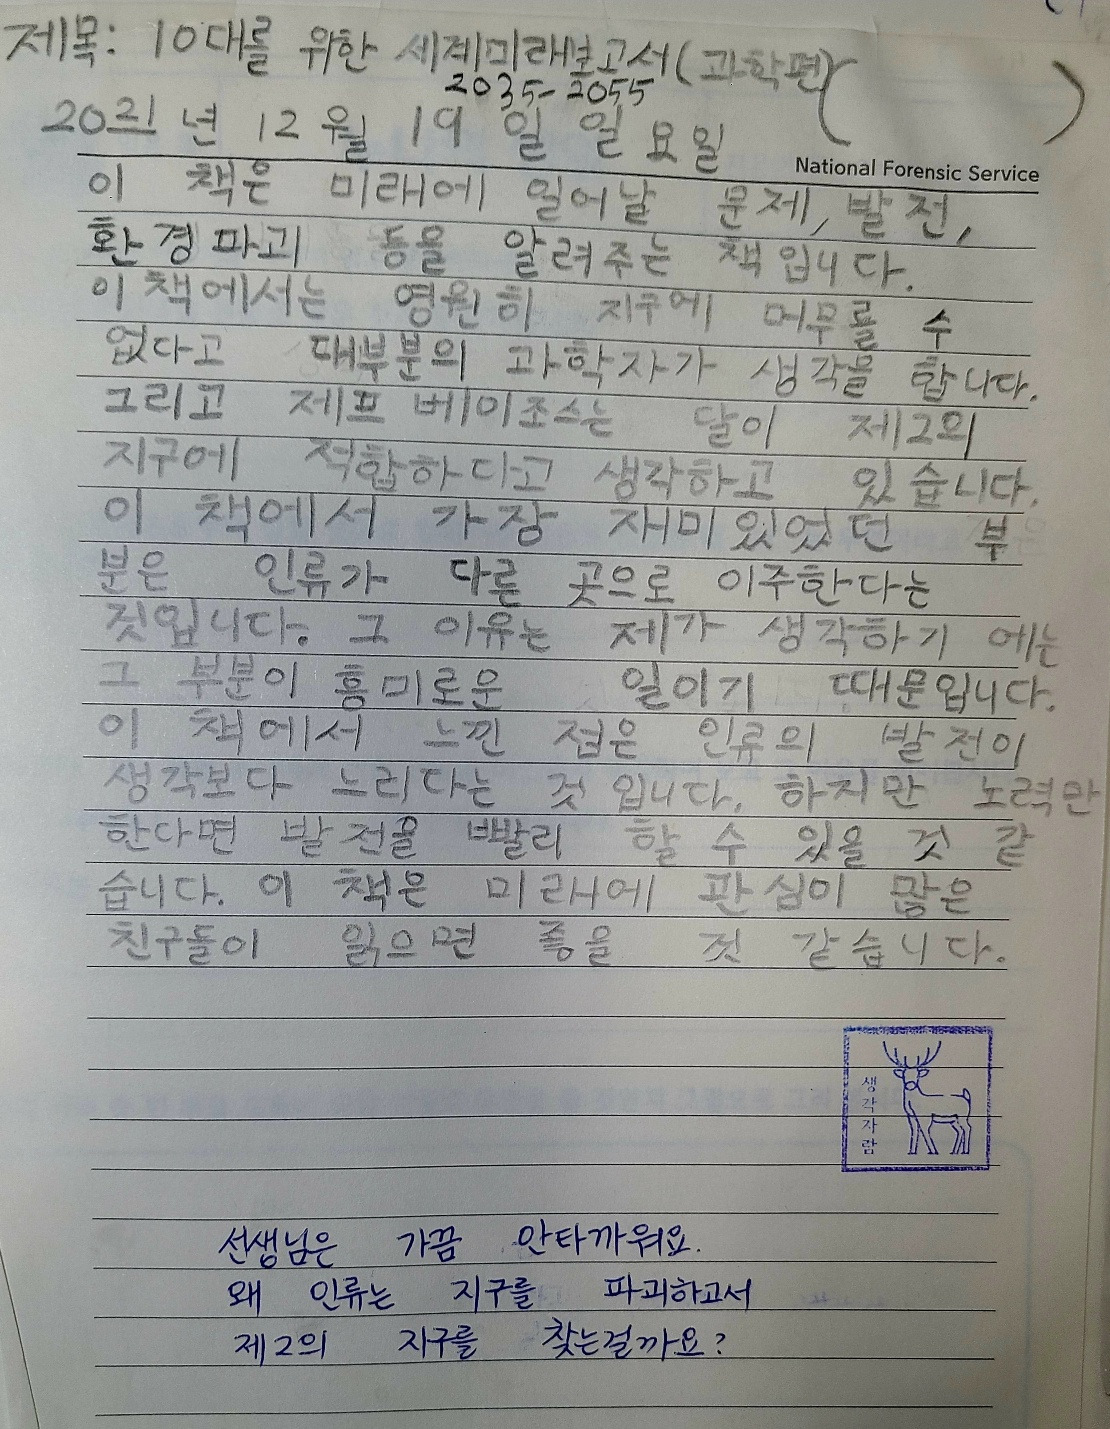 제목: 10대를 위한 세계미래보고서(과학편)(          )
2035-2055
2021년 12월 19일 일요일
National Forensic Service
이 책은 미래에 일어날 문제, 발전,
환경파괴 등을 알려주는 책입니다.
이 책에서는 영원히 지구에 머무를 수
없다고 대부분의 과학자가 생각을 합니다.
그리고 제프 베이조스는 달이 제2의
지구에 적합하다고 생각하고 있습니다.
이 책에서 가장 재미있었던 부
분은 인류가 다른 곳으로 이주한다는
것입니다. 그 이유는 제가 생각하기 에는
그 부분이 흥미로운 일이기 때문입니다.
이 책에서 느낀 점은 인류의 발전이
생각보다 느리다는 것 입니다. 하지만 노력만
한다면 발전을 빨리 할 수 있을 것 같
습니다. 이 책은 미래에 관심이 많은
친구들이 읽으면 좋을 것 같습니다.
생각자람
선생님은 가끔 안타까워요.
왜 인류는 지구를 파괴하고서
제2의 지구를 찾는걸까요?